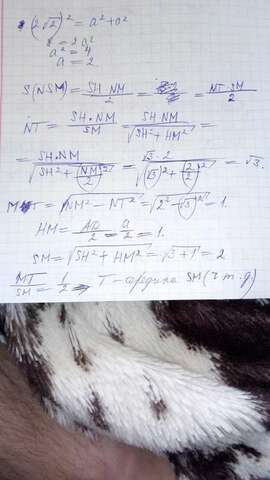 (2√2)² = a² + a²
8 = 2a²
a² = 4
a = 2
S(NSM) = SH·NM/2 = NT·SM/2
NT = SH·NM/SM = SH·NM/√(SH² + HM²) =
= SH·NM/√(SH² + (NM/2)²) = √3·2/√((√3)² + (2/2)²) = √3.
MT = √(NM² - NT²) = √(2² - √3²) = 1.
HM = AD/2 = a/2 = 1.
SM = √(SH² + HM²) = √(3 + 1) = 2
MT/SM = 1/2 T - середина SM (ч.т.д)